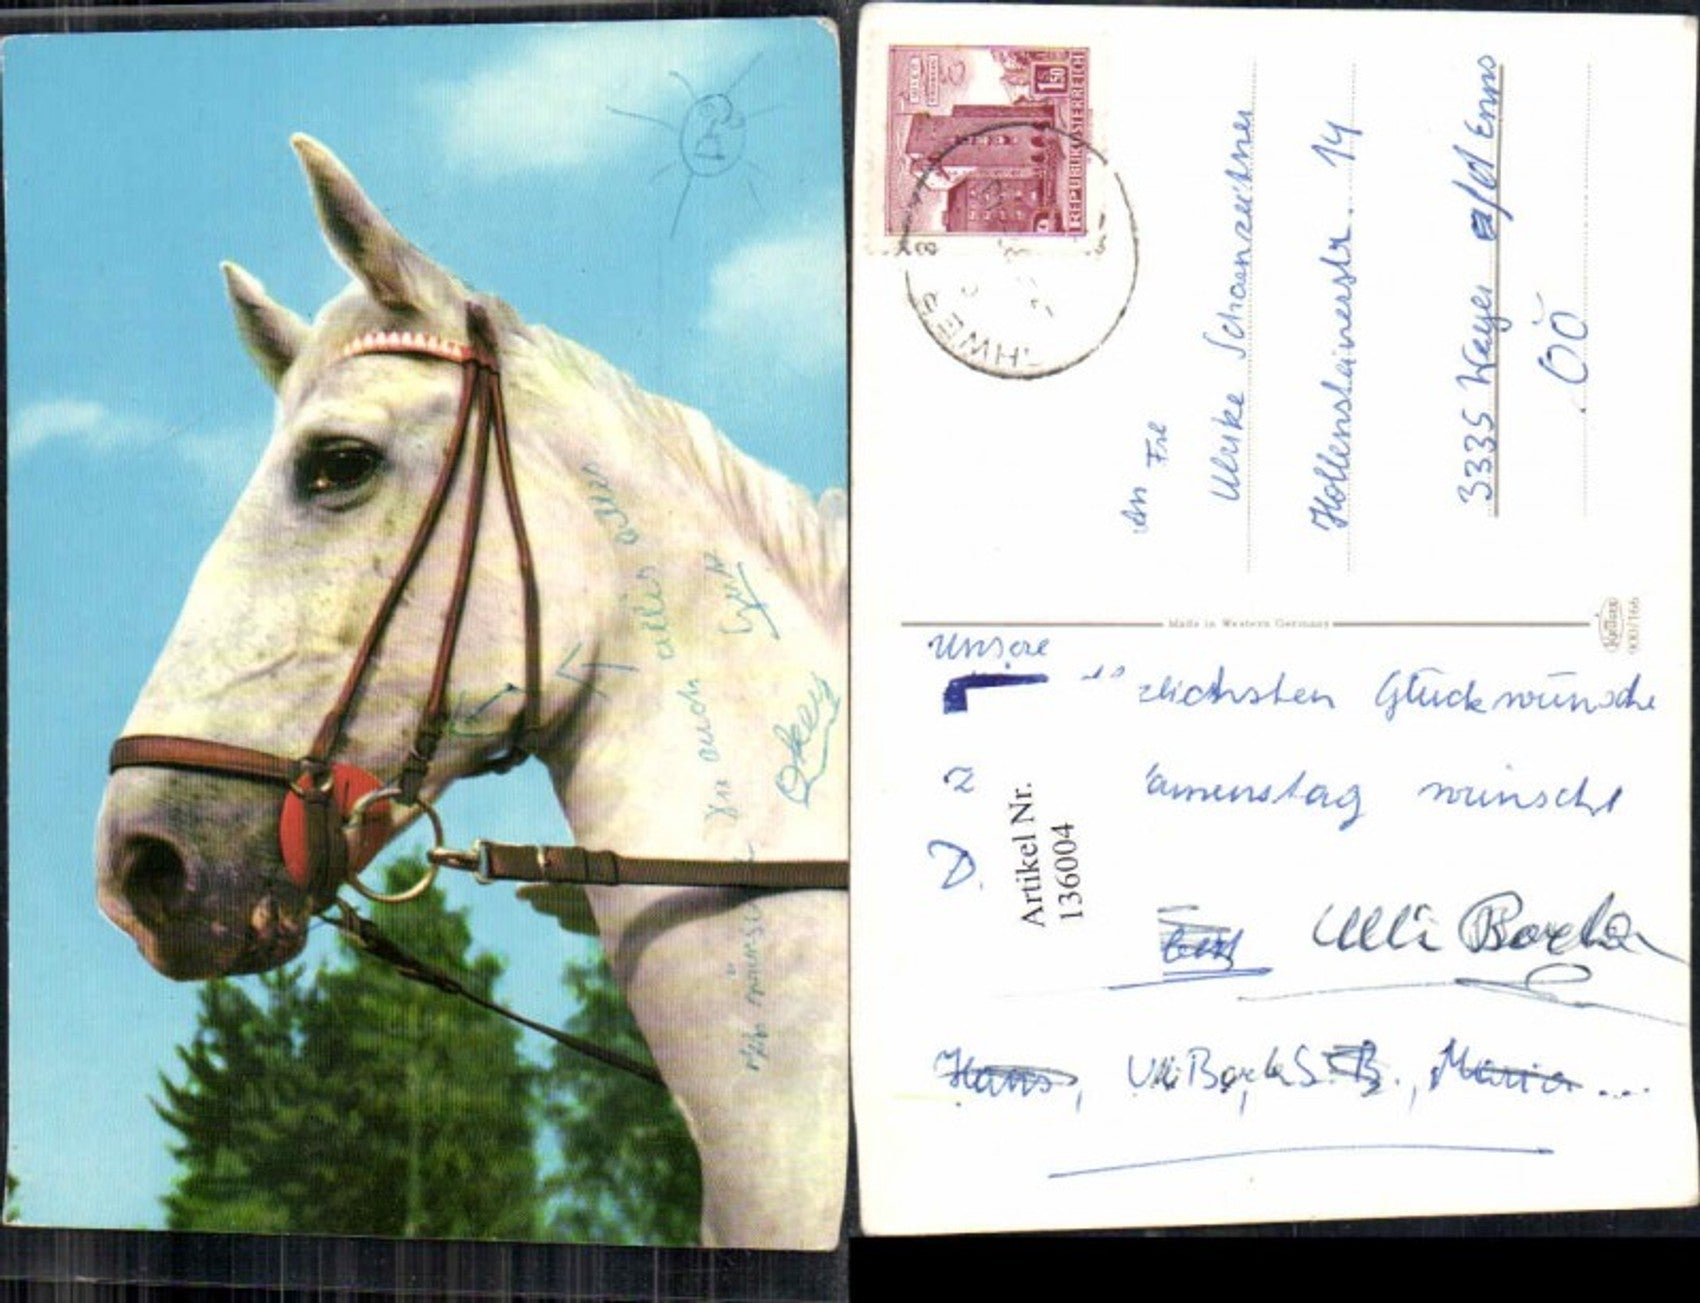 Wir wünschen
Du auch
alles alles
Gute
Oskar
REPUBLIK ÖSTERREICH
1.50
An Frl
Ulrike Schoanzeitner
Hollensteinerstr. 14
3335 Weyer a/d Enns
OÖ
Made in Western Germany
Krüger
900/166
Unsere
zlichsten Glückwünsche
z
amenstag wünscht
D.
Artikel Nr.
136004
Ulli
Hans, Ulli S. B., Maria ...